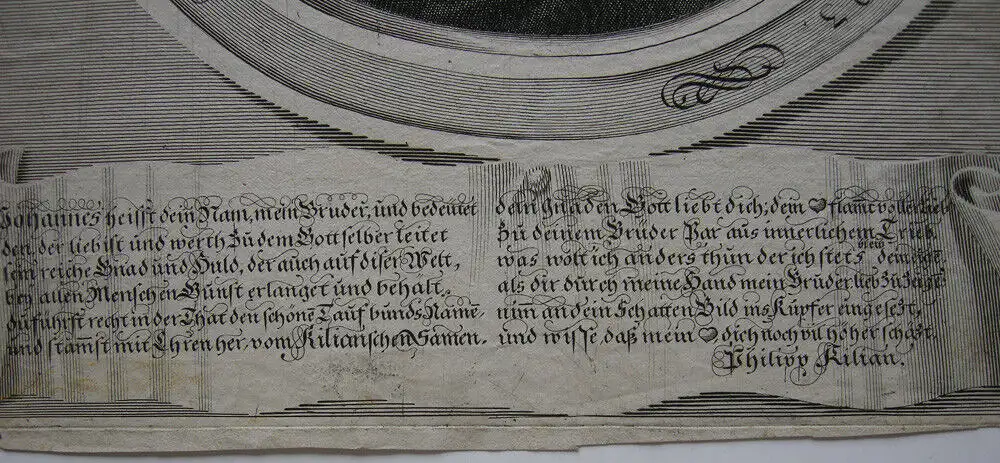 3.
Johannes heisst dein Nam, mein Bruder, und bedeutet
den, der lieb ist und werth Zu dem Gott selber leitet
sein reiche Gnad und Huld, der auch auf diser Welt,
bey allen Menschen Gunst erlanget und behält.
du führst recht in der That den schönē Tauf bunds Namē
und stam̄st mit Ehren her, vom Kilianischen Samen.
dein Gnaden Gott liebt dich, dein ♥ flam̄t voller Lieb
Zu deinem Bruder Par aus innerlichem Trieb.
was wolt ich anders thun der ich stets bleib dein eigē
als dir durch meine Hand mein Bruder lieb Zu Zeigē
nim̄ an dein Schatten Bild ins Kupfer eingesezt,
und wisse daß mein ♥ dich noch vil höher schäzt.
Philipp Kilian.